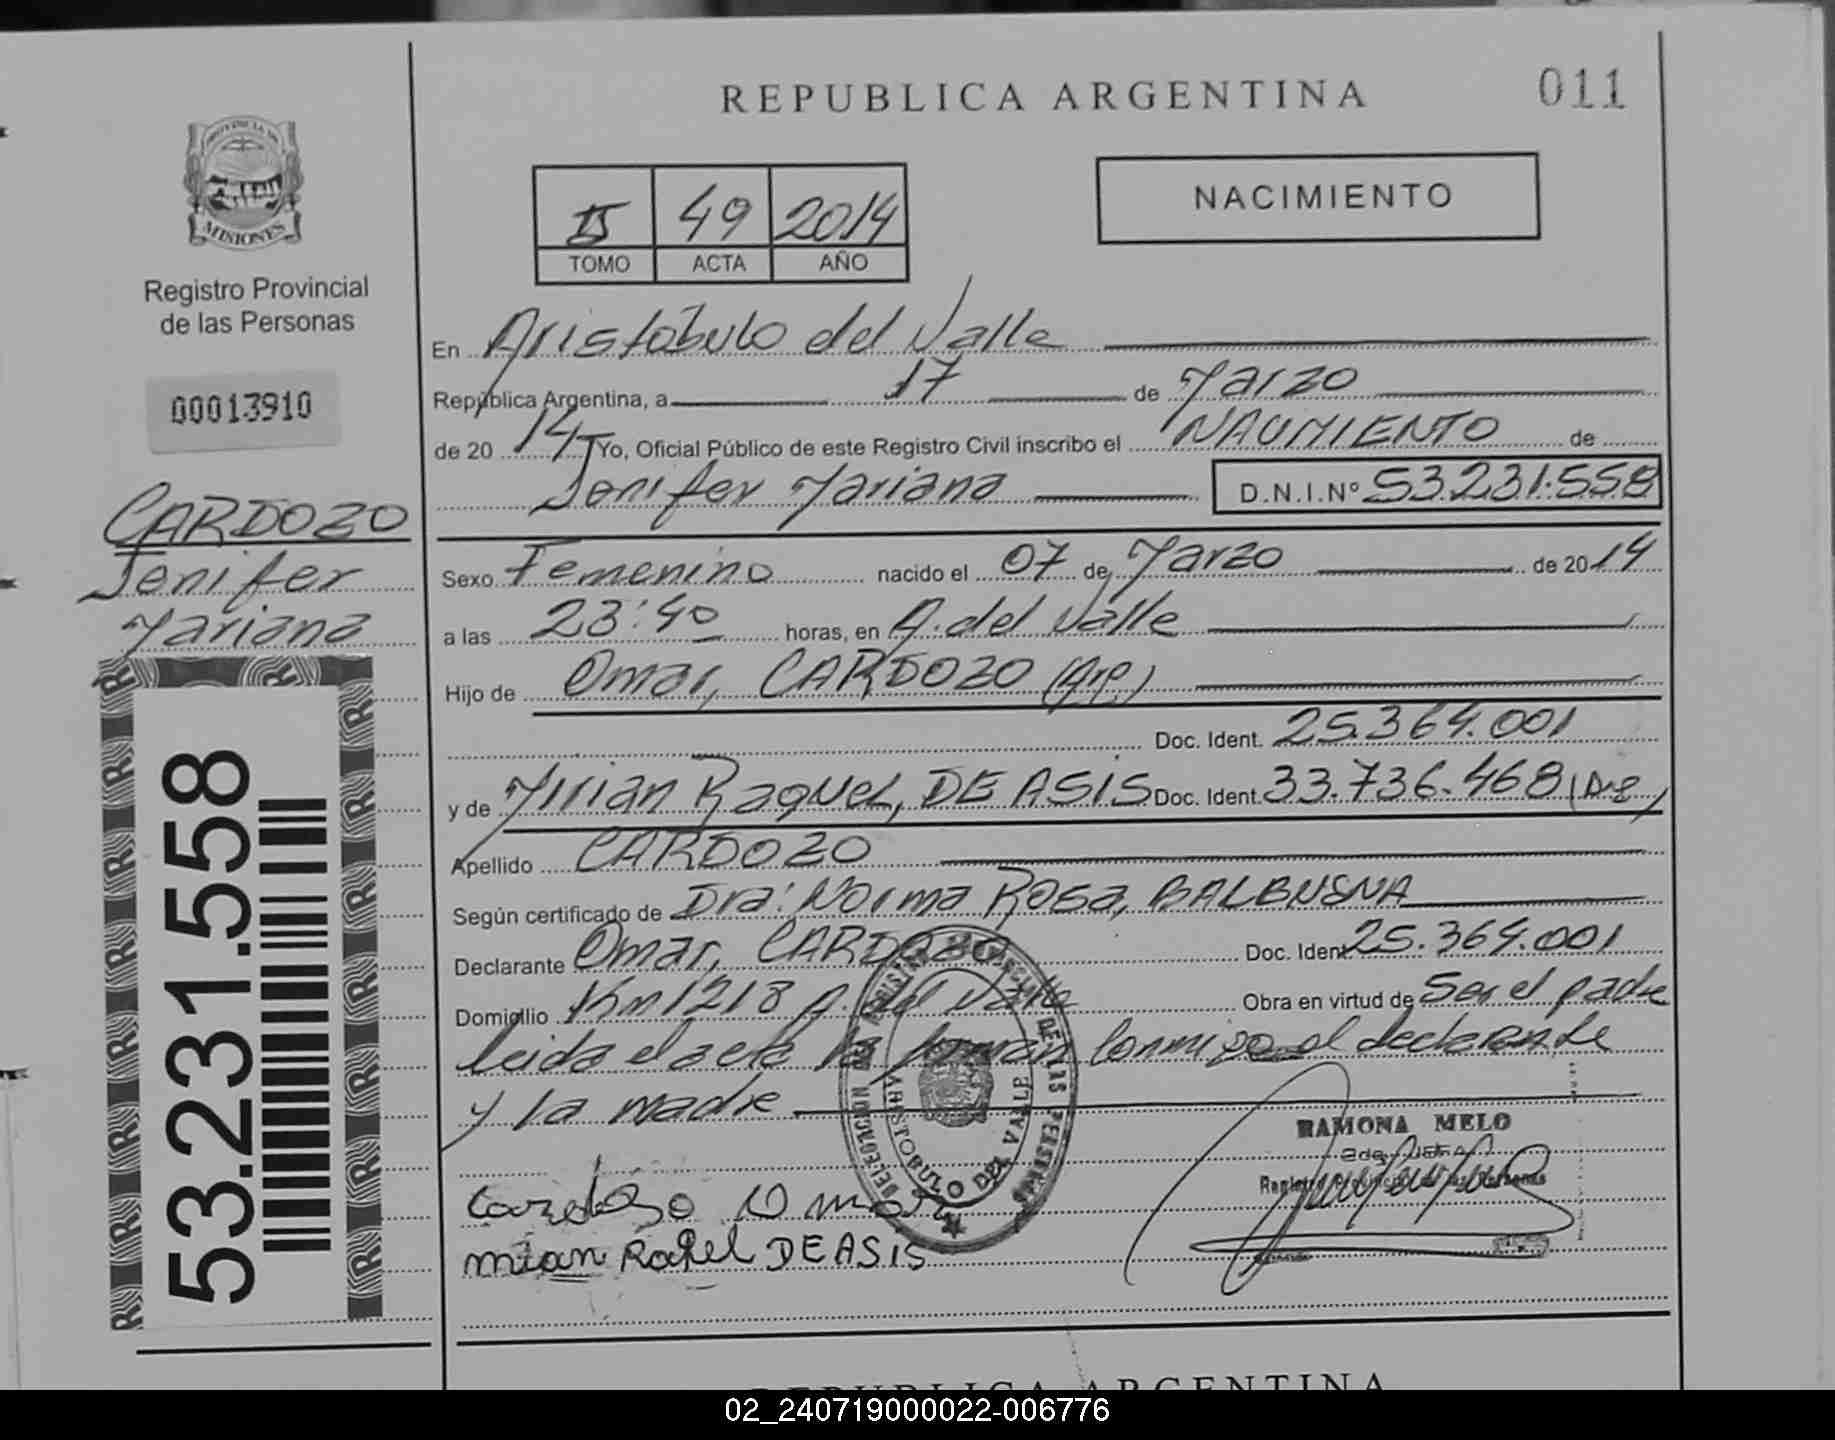 REPUBLICA ARGENTINA
011
PROVINCIA DE
MISIONES
Registro Provincial
de las Personas
00013910
CARDOZO
Jenifer
Mariana
53.231.558
II 49 2014
TOMO ACTA AÑO
NACIMIENTO
En Aristóbulo del Valle
República Argentina, a 17 de Marzo
de 20 14 Yo, Oficial Público de este Registro Civil inscribo el NACIMIENTO de
Jenifer Mariana D.N.I.Nº 53.231.558
Sexo Femenino nacido el 07 de Marzo de 20 14
a las 23:40 horas, en A. del Valle
Hijo de Omar, CARDOZO (Arg)
Doc. Ident. 25.364.001
y de Mirian Raquel, DE ASIS Doc. Ident. 33.736.468 (Arg)
Apellido CARDOZO
Según certificado de Dra: Norma Rosa, BALBUENA
Declarante Omar, CARDOZO Doc. Ident 25.364.001
Domicilio Km 1218 A. del Valle Obra en virtud de Ser el padre
leida el acta la firman conmigo el declarante
y la madre
DELEGACION DEL REGISTRO PROVINCIAL DE LAS PERSONAS
ARISTOBULO DEL VALLE
RAMONA MELO
Registro Provincial de las Personas
Cardozo Omar
mian Rakel DE ASIS
REPUBLICA ARGENTINA
02_240719000022-006776